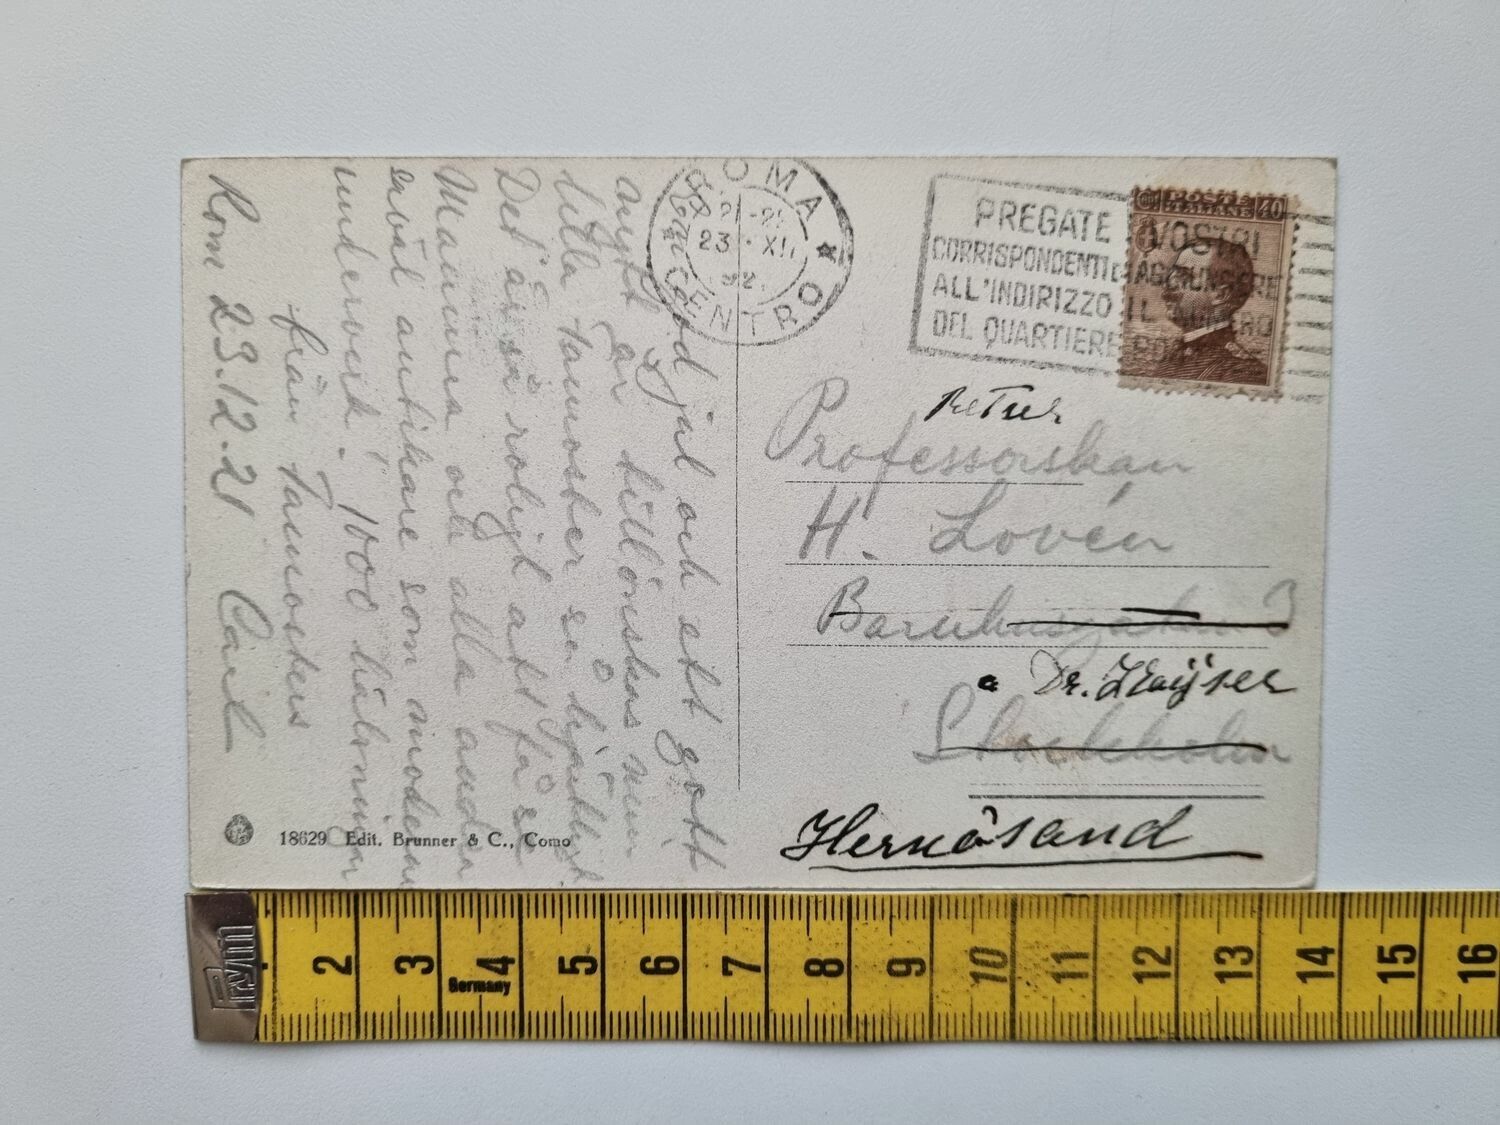 En god jul och ett gott
nytt år tillönskas min
lilla Tamoster så hjärtligt.
Det är så roligt att få se
Mamma och alla andra
såväl antikare som modärna
underverk. 1000 hälsningar
från Tamosters
Rom 23.12.21 Carl
ROMA
21-22
23 XII
CENTRO
PREGATE I VOSTRI
CORRISPONDENTI DI AGGIUNGERE
ALL'INDIRIZZO IL NUMERO
DEL QUARTIERE
POSTE
ITALIANE
40
Retur
Professorskan
H. Lovén
Barnhusgatan 3
Dr. Kaijser
Stockholm
Hernösand
18629 Edit. Brunner & C., Como
Prym
Germany
2 3 4 5 6 7 8 9 10 11 12 13 14 15 16